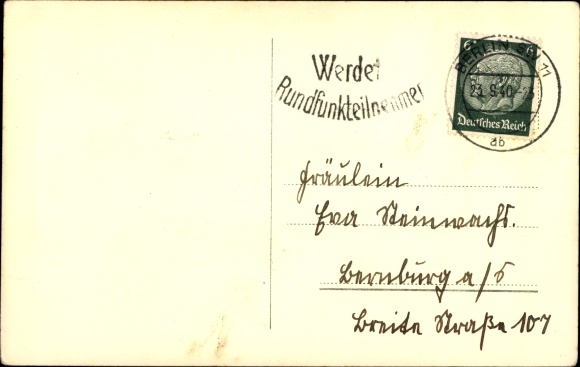 Werdet
Rundfunkteilnehmer
6 6
BERLIN SW 11
9.40
ab
Deutsches Reich
Fräulein
Eva Steinwachs.
Bernburg a/S
Breite Straße 107